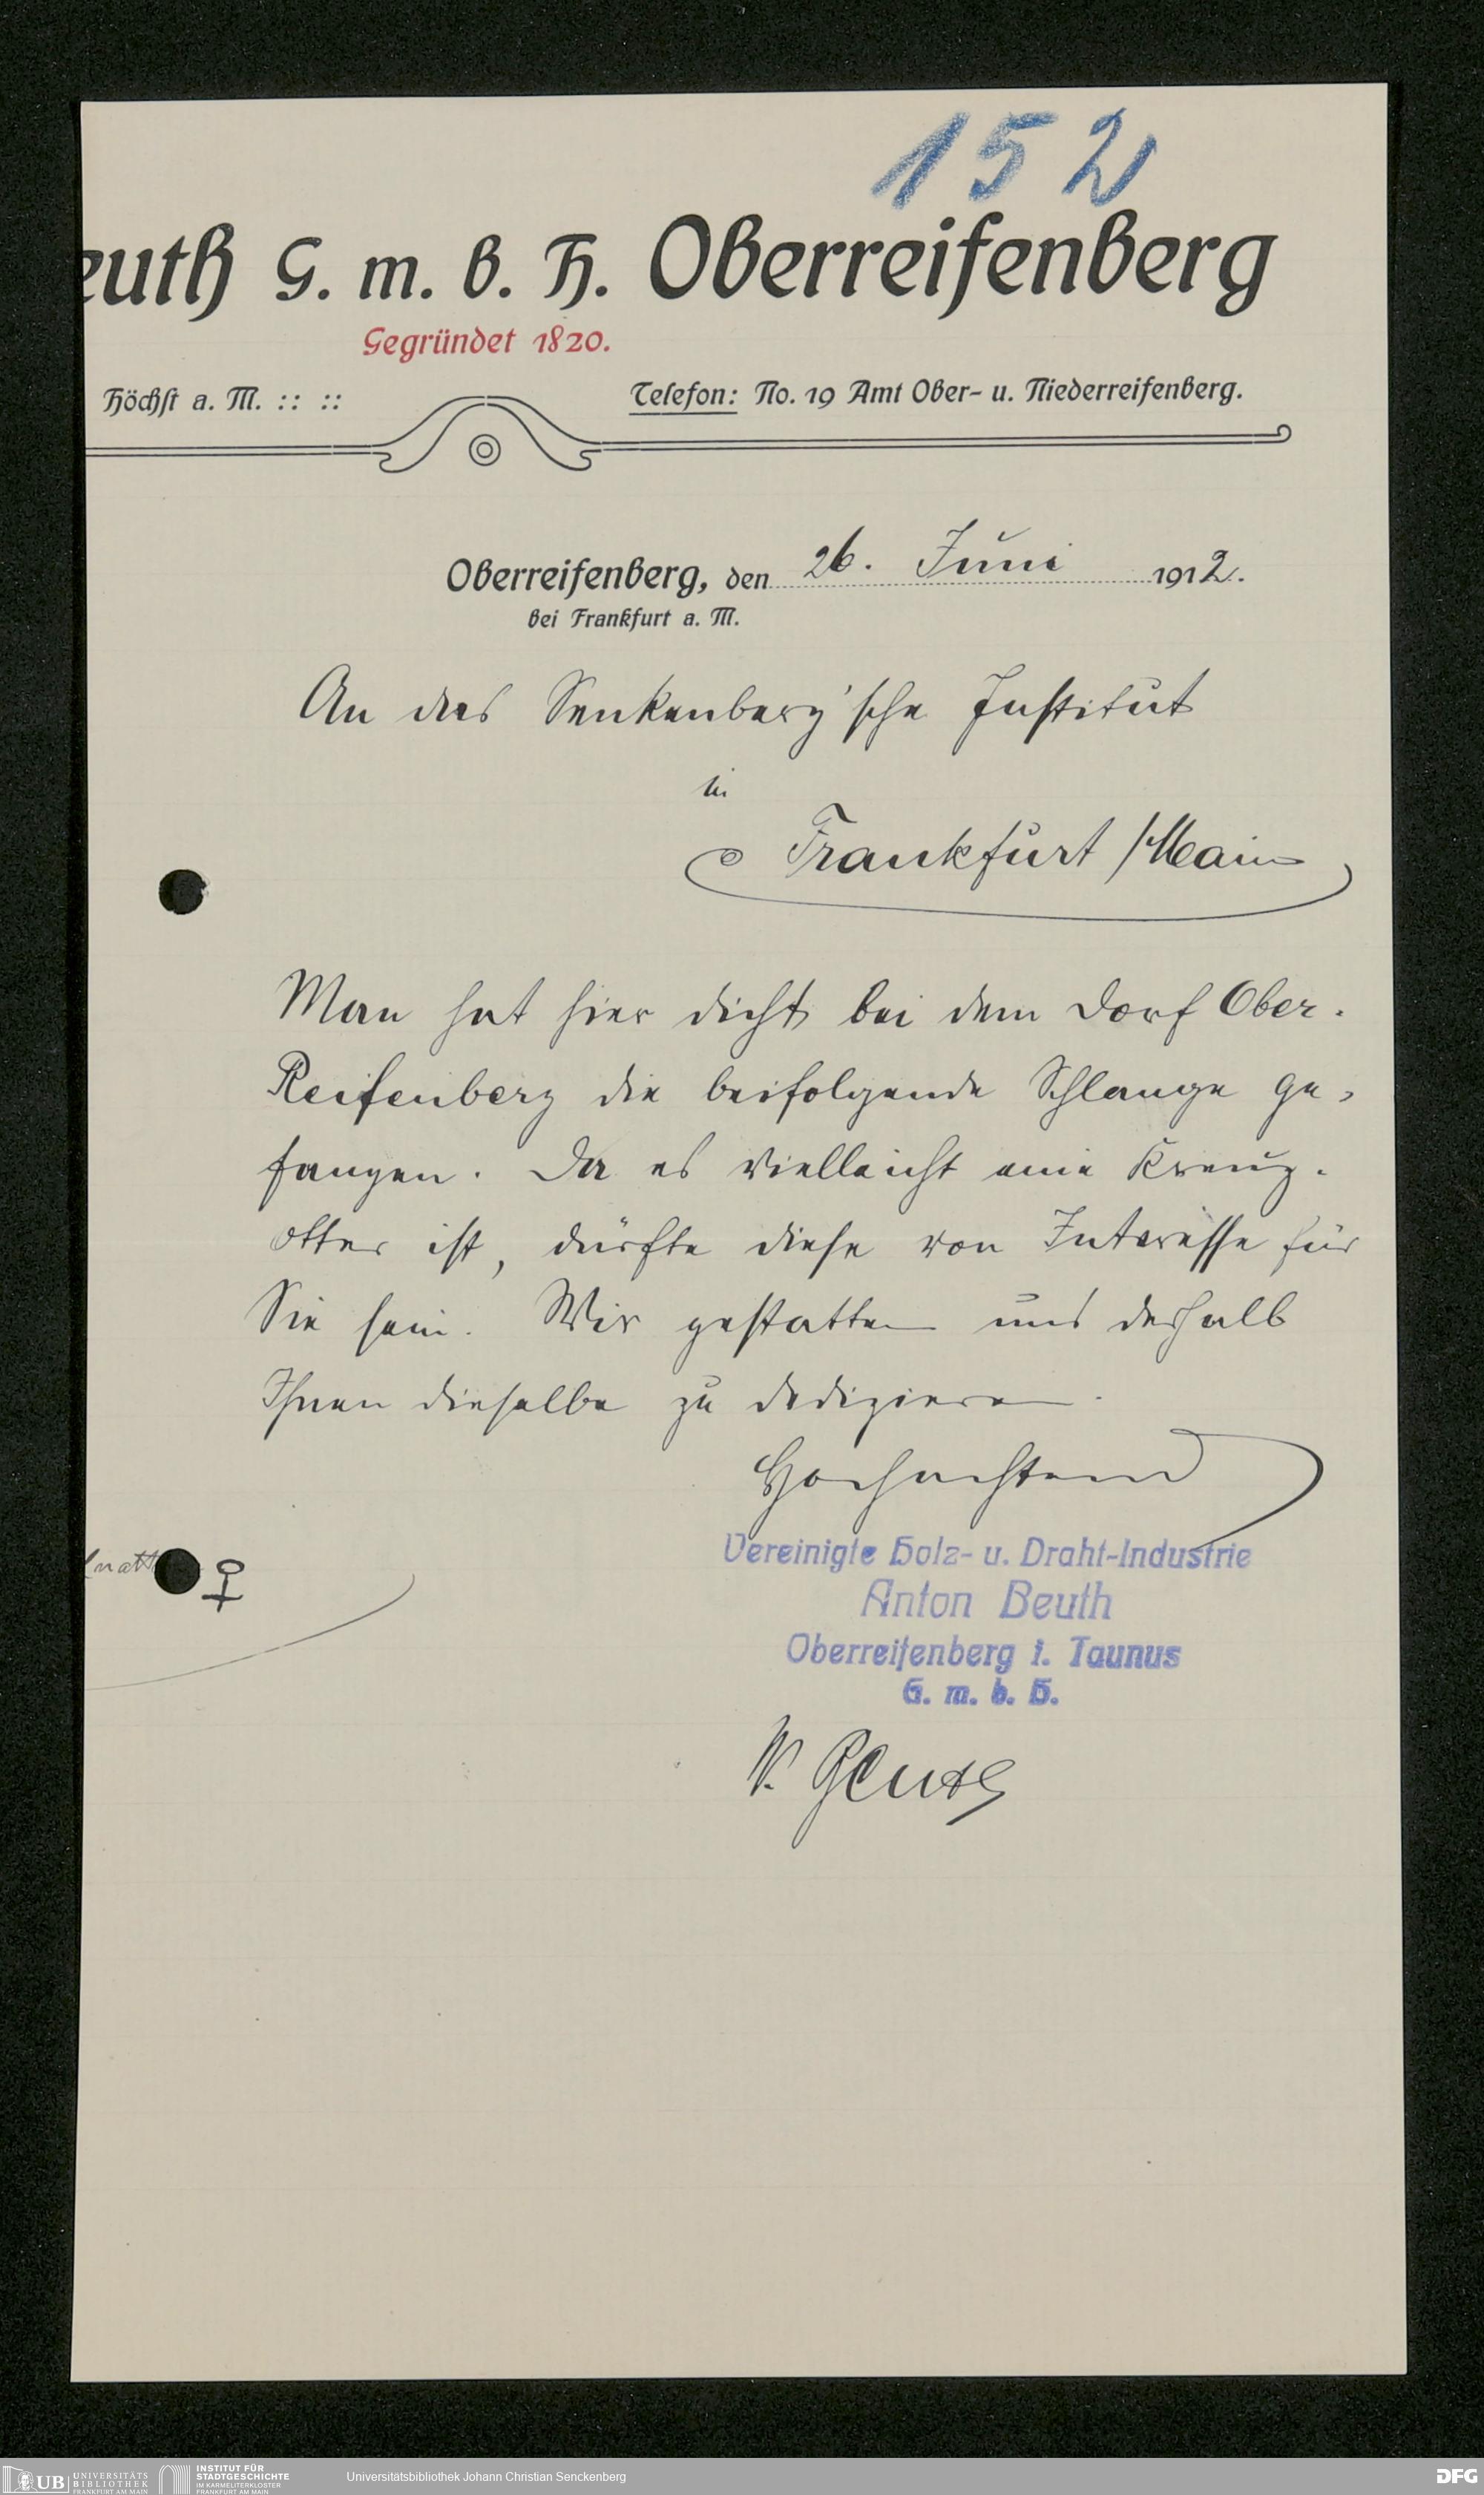 152
euth G. m. b. H. Oberreifenberg
Gegründet 1820.
Höchst a. M. :: ::
Telefon: No. 19 Amt Ober- u. Niederreifenberg.
Oberreifenberg, den 26. Juni 1912.
bei Frankfurt a. M.
An das Senkenberg'sche Institut
in
Frankfurt /Main
Man hat hier dicht bei dem Dorf Ober-
Reifenberg die beifolgende Schlange ge-
fangen. Da es vielleicht eine Kreuz-
otter ist, dürfte diese von Interesse für
Sie sein. Wir gestatten uns deshalb
Ihnen dieselbe zu dedizieren.
Hochachtend
natt ♀
Vereinigte Holz- u. Draht-Industrie
Anton Beuth
Oberreifenberg i. Taunus
G. m. b. H.
W. Beuth
UB UNIVERSITÄTS BIBLIOTHEK FRANKFURT AM MAIN
INSTITUT FÜR STADTGESCHICHTE IM KARMELITERKLOSTER FRANKFURT AM MAIN
Universitätsbibliothek Johann Christian Senckenberg
DFG